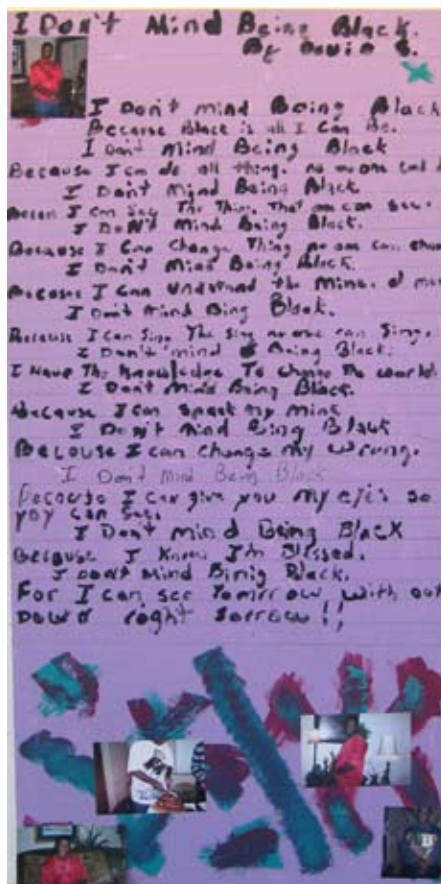 I Don't Mind Being Black.
By David S.
I Don't mind Being Black
Because Black is all I can Be.
I Don't Mind Being Black
Because I can do all thing. no one
I Don't Mind Being Black
I can say The Thing. That no can see.
I Don't Mind Being Black.
Because I can change Thing no one can
I Don't Mind Being Black.
Because I can the mine. of
I Don't mind Bing Black.
Because I can Sing The Sing no one can Sing.
I Don't mind Being Black.
I Have The Knowledge To change The world.
I Don't Mind Being Black.
Because I can speak my mine
I Don't mind Being Black
Because I can change my wrong.
I Don't Mind Being Black
Because I can give you my eyes so
you can see.
I Don't mind Being Black
Because I Know I'm Blessed.
I Don't Mind Being Black.
For I can see Tomorrow, with out
right sorrow!!